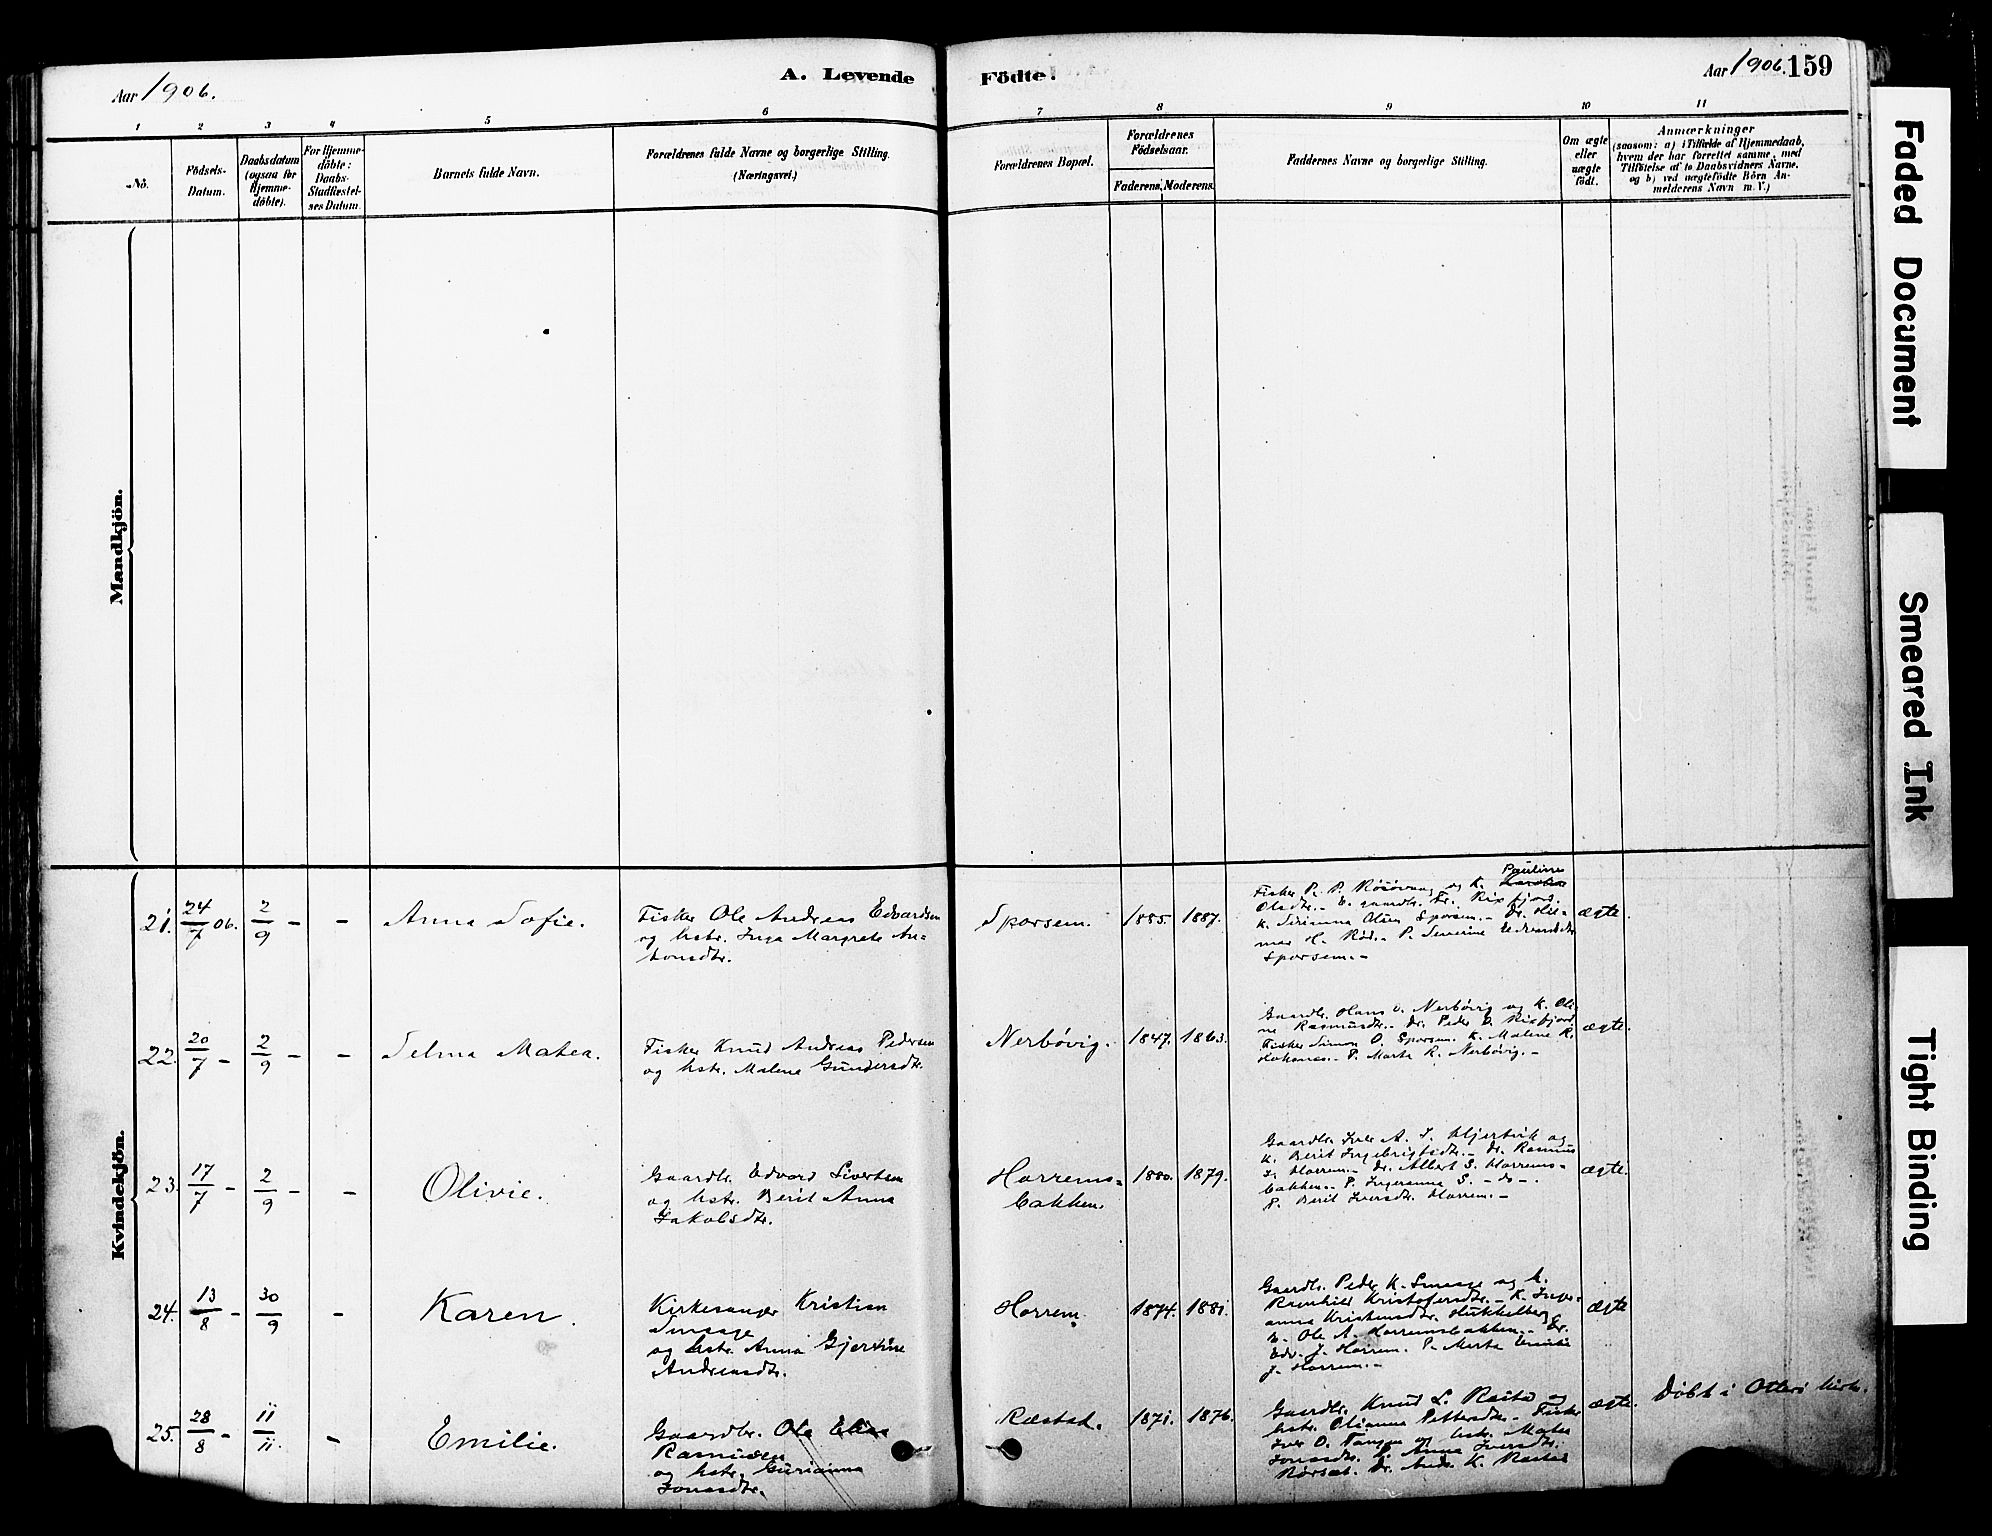 Aar 1906.
A. Levende
Födte.
Aar 1906. 159
1 2 3 4 5 6 7 8 9 10 11
No.
Födsels-
Datum.
Daabsdatum
(ogsaa for
Hjemme-
döbte).
For Hjemme-
döbte:
Daabs-
Stadfæstel-
ses Datum.
Barnets fulde Navn.
Forældrenes fulde Navne og borgerlige Stilling.
(Næringsvei.)
Forældrenes Bopæl.
Forældrenes
Födselsaar.
Faderens. Moderens.
Faddernes Navne og borgerlige Stilling.
Om ægte
eller
uægte
født.
Anmærkninger
(saasom: a) i Tilfælde af Hjemmedaab,
hvem der har forrettet samme, med
Tilföielse af to Daabsvidners Navne.
og b) ved uægtefödte Börn An-
melderens Navn m. V.)
Mandkjön.
Kvindekjön.
21. 24/7 06. 2/9 - - Anna Sofie.
Fisker Ole Andreas Edvardsen
og hstr. Inga Margrete An-
tonsdtr.
Sporsem. 1885. 1887.
Fisker P. P. Røsövaag og K. Pauline
Olsdtr. -
K. Sirianna Olsen Sporsem. -
mar H. Röd. - P. Severine Edvardsdtr
Sporsem. -
ægte.
22. 20/7 - 2/9 - - Selma Matea.
Fisker Knud Andreas Pedersen
og hstr. Malena Gundersdtr.
Nerbøvig. 1847. 1863.
Gaardbr. Hans O. Nerbøvig og K. Oli-
ne Rasmusdtr. - Dr. Peder O. Rixfjord
Fisker Simon O. Sporsem. K. Malene R.
Hoksnes. - P. Marta R. Nerbövig. -
ægte.
23. 17/7 - 2/9 - - Olivie.
Gaardbr. Edvard Sivertsen
og hstr. Berit Anna
Jakobsdtr.
Horrems-
bakken. 1880. 1879.
Gaardbr. Iver A. I. Hjertvik og
K. Berit Ingebrigtsdtr. - Dr. Rasmus
I. Horrem. - Dr. Albert S. Horrems-
bakken. - P. Ingeranna S. - ds -.
P. Berit Iversdtr. Horrem. -
ægte.
24. 13/8 - 30/9 - Karen.
Kirkesanger Kristian
Smaage
og hstr. Anna Gjertine
Andreasdtr.
Horrem. 1874. 1881.
Gaardbr. Peder K. Smaage og K.
Ragnhild Kristofersdtr. - K. Inger-
anna Kristensdtr. Hukkelberg
E. Ole A. Horremsbakken. - Dr.
Edv. J. Horrem. P. Marta Emilie
J. Horrem. -
ægte
25. 28/8 - 11/11. - Emilie.
Gaardbr. Ole Elias
Rasmusen
og hstr. Gurianna
Jonasdtr.
Ræstad. 1871. 1876.
Gaardbr. Knud L. Ræstad og
hstr. Olianna Pettersdtr. - Fisker
Iver O. Tangen og hstr. Matea
Jonasdtr. P. Anna Iversdtr.
Rörset. Dr. Ands. K. Ræstad
ægte. Döbt i Otterö kirke.
Faded Document
Smeared Ink
Tight Binding